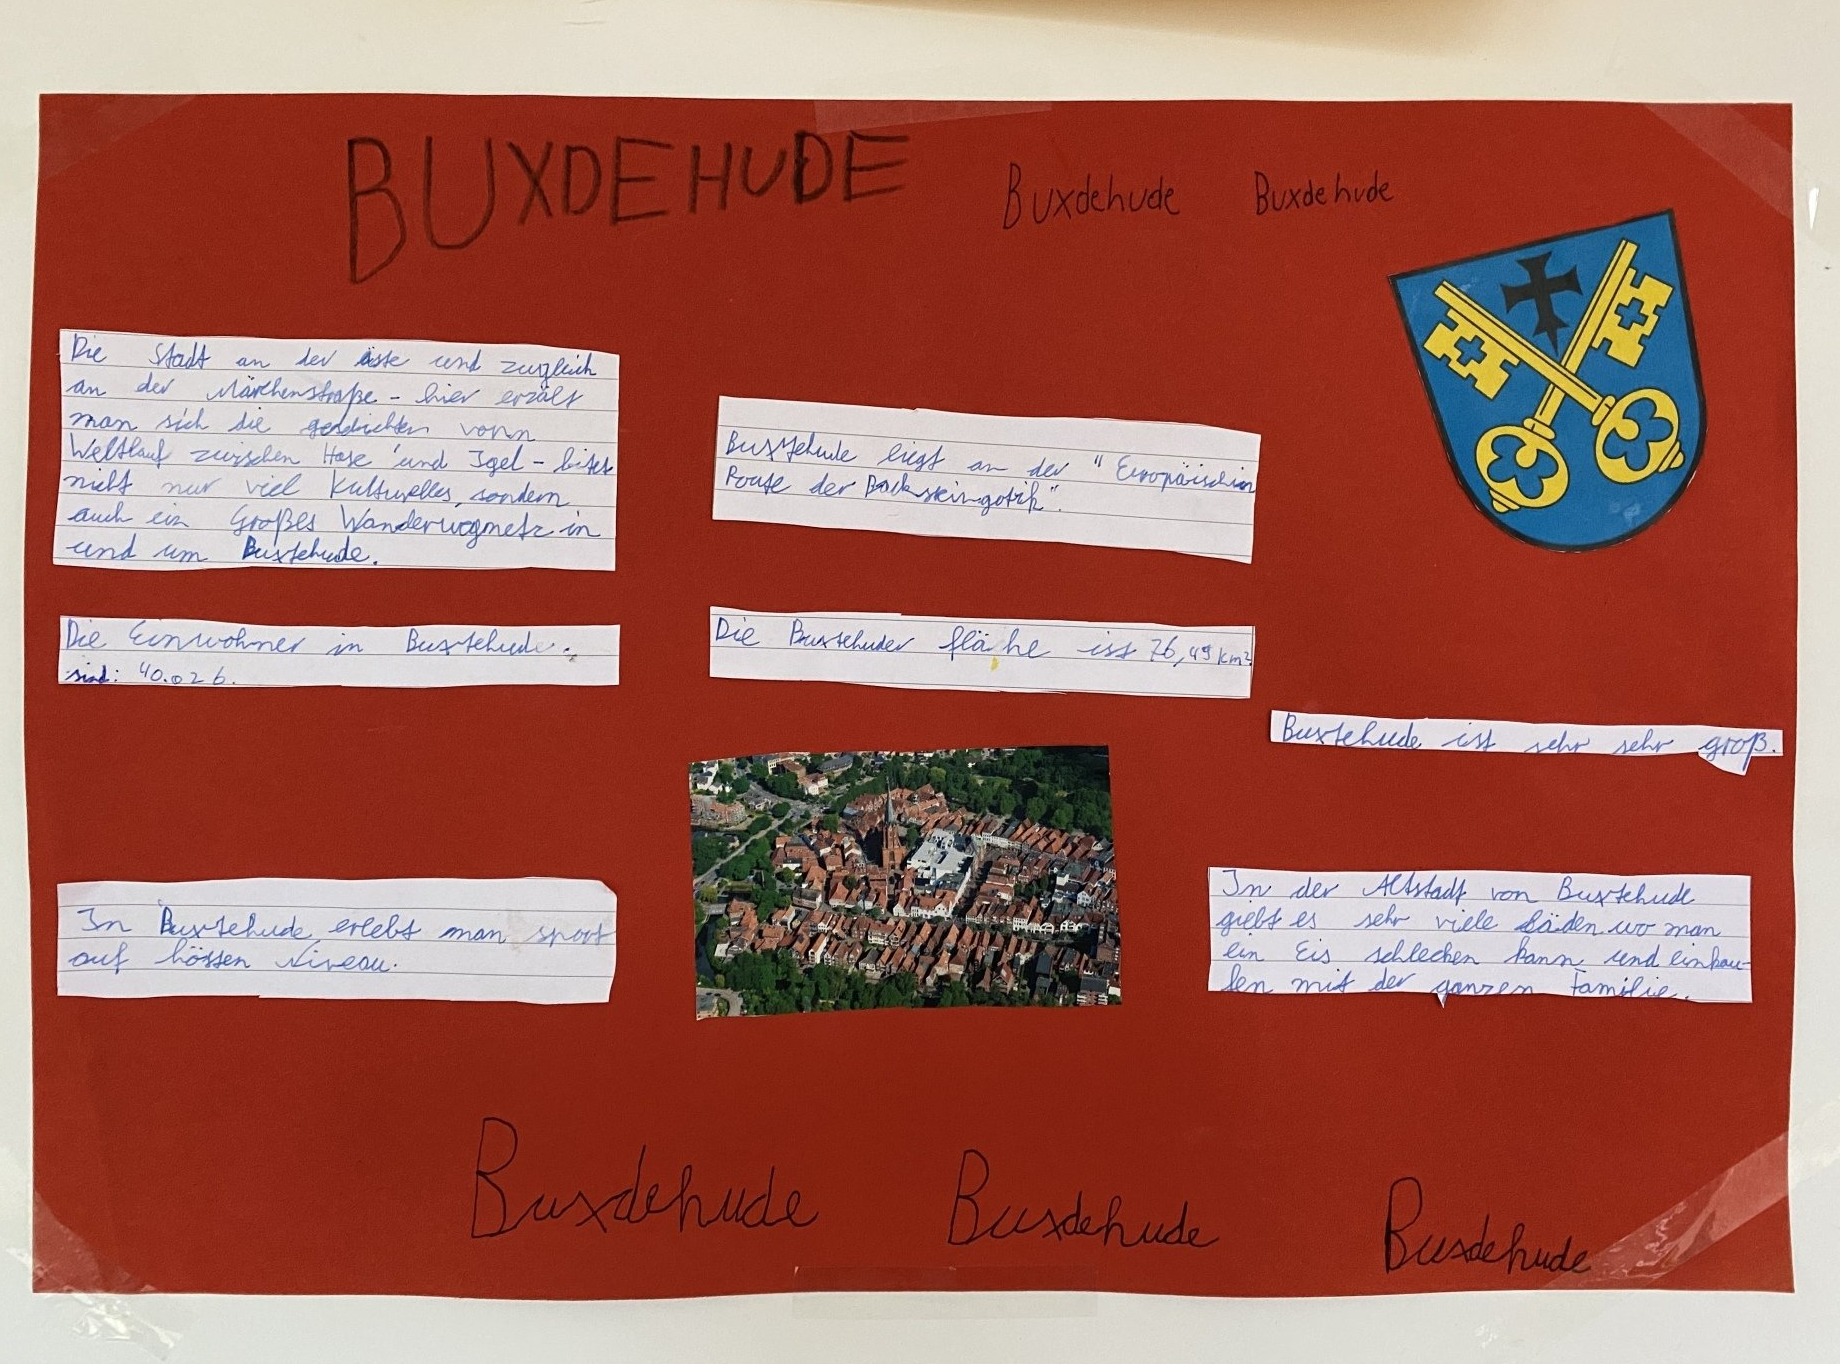 BUXDEHUDE
Buxdehude
Buxdehude
Die Stadt an der äste und zugleich
an der Märchenstraße - hier erzält
man sich die gedichten vonn
Weltlauf zwischen Hase und Igel - bitet
nicht nur viel Kulturelles, sondern
auch ein Großes Wanderwegnetz in
und um Buxtehude.
Buxtehude liegt an der "Europäischen
Route der Backsteingotik".
Die Einwohner in Buxtehude
sind: 40.026.
Die Buxtehuder fläche ist 76,49 km²
Buxtehude ist sehr sehr groß.
In Buxtehude erlebt man sport
auf hössen Niveau.
In der Altstadt von Buxtehude
giebt es sehr viele Läden wo man
ein Eis schlecken kann und einkau-
fen mit der ganzen Familie.
Buxdehude
Buxdehude
Buxdehude